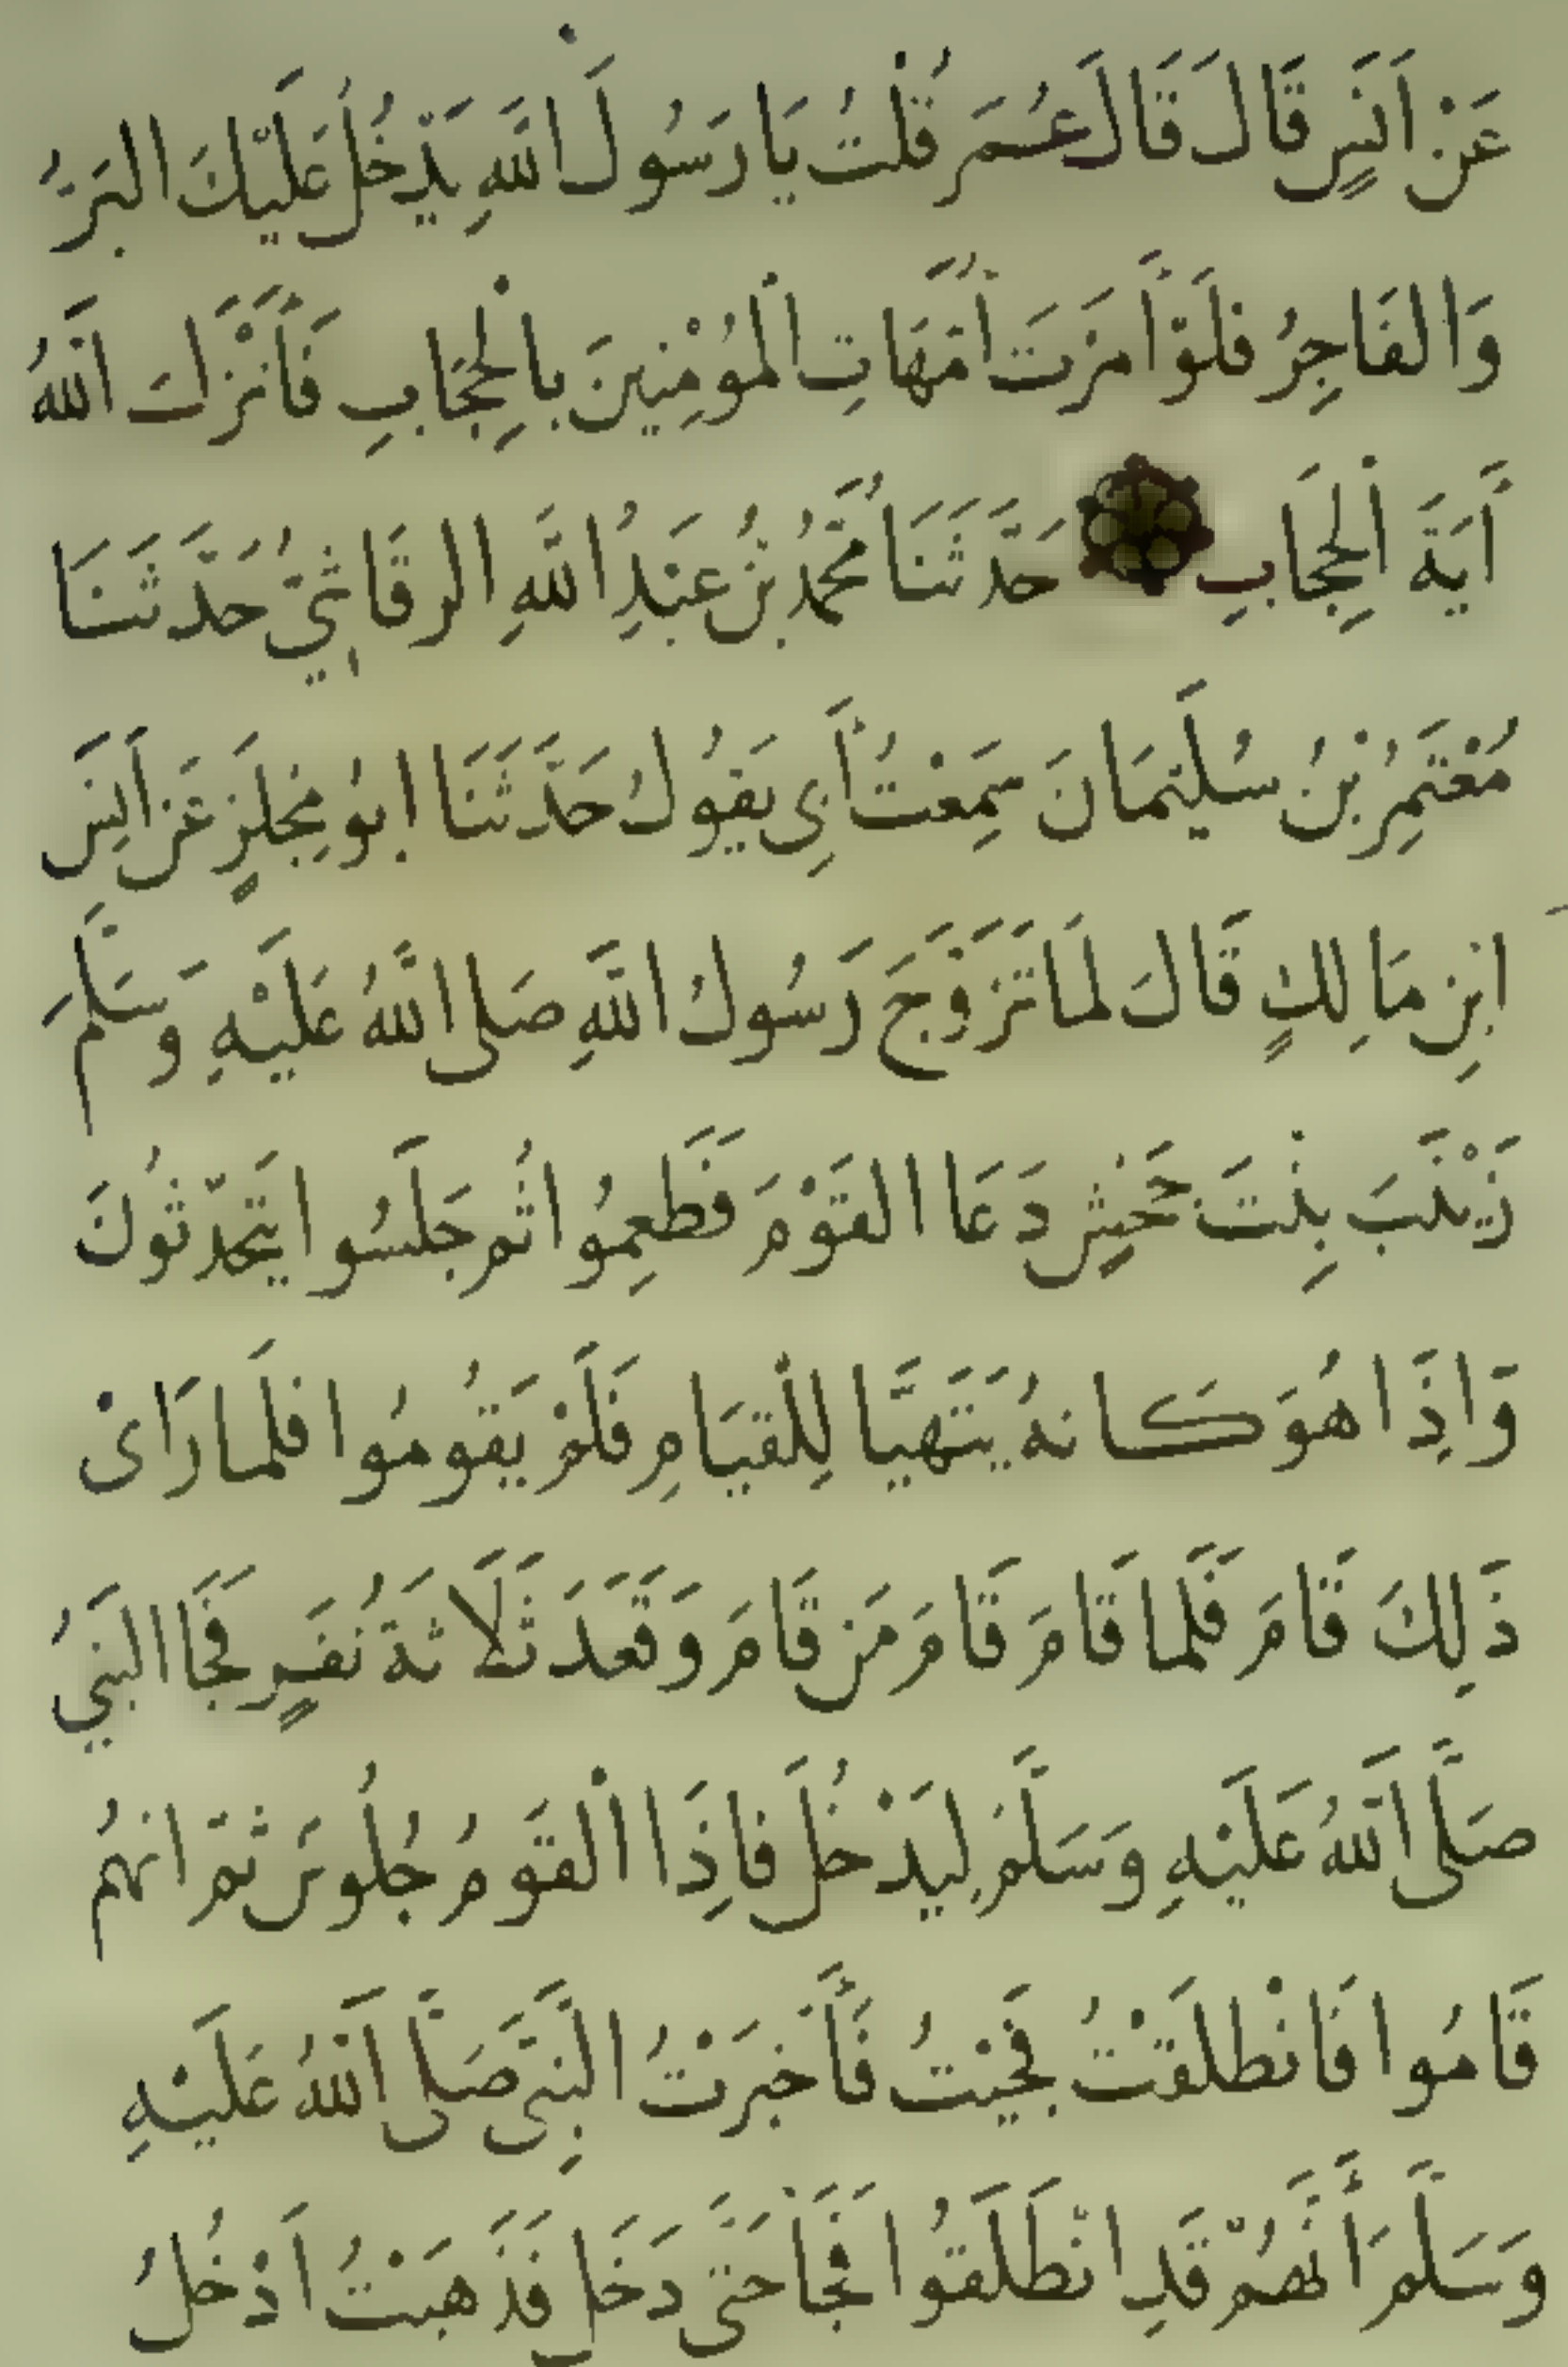 عَنْ اَنَسٍ قَالَ قَالَ عُمَرَ قُلْتُ يَا رَسُولَ اللَّهِ يَدْخُلُ عَلَيْكَ البَرُّ
وَالفَاجِرُ فَلَوْ أَمَرْتَ أُمَّهَاتِ الْمُؤْمِنِينَ بِالْحِجَابِ فَأَنْزَلَ اللَّهُ
أَيَةَ الْحِجَابِ حَدَّثَنَا مُحَمَّدُ بْنُ عَبْدِ اللَّهِ الرقَاشِيُّ حَدَّثَنَا
مُعْتَمِرُ بْنُ سُلَيْمَانَ سَمِعْتُ أَبِي يَقُولُ حَدَّثَنَا ابُو مِجْلَزٍ عَنْ اَنَسِ
ابْنِ مَالِكٍ قَالَ لَمَا تَزَوَّجَ رَسُولُ اللَّهِ صَلى اللَّهُ عَلَيْهِ وَسَلَّمَ
زَيْنَبَ بِنْتَ جَحْشٍ دَعَا القَوْمَ فَطَعِمُوا ثُم جَلَسُوا يَتَحَدّثُونَ
وَاِذَا هُوَ كَانهُ يَتَهَيَّا لِلْقيَامِ فَلَمْ يَقُومُوا فلَمَا رَاَىْ
ذَلِكَ قَامَ فَلَما قَامَ قَامَ مَن قَامَ وَقَعَدَ ثَلَاثَةُ نَفَرٍ فَجَا النَبِيُ
صَلَّى اللَّهُ عَلَيْهِ وَسَلَّمَ لِيَدْخُلَ فاِذَا الْقَومُ جُلُوسٌ ثمَّ انهُم
قَامُوا فَانْطلَقْتُ فَجِيْتُ فَأَخبَرْتُ النَّبِىَّ صَلَّى اللَّهُ عَلَيْهِ
وَسَلَّمَ أَنَّهُمْ قَدِ انْطَلَقُوا فَجَاَ حَتَّى دَخَلَ فَذَهَبْتُ اَدْخُلُ